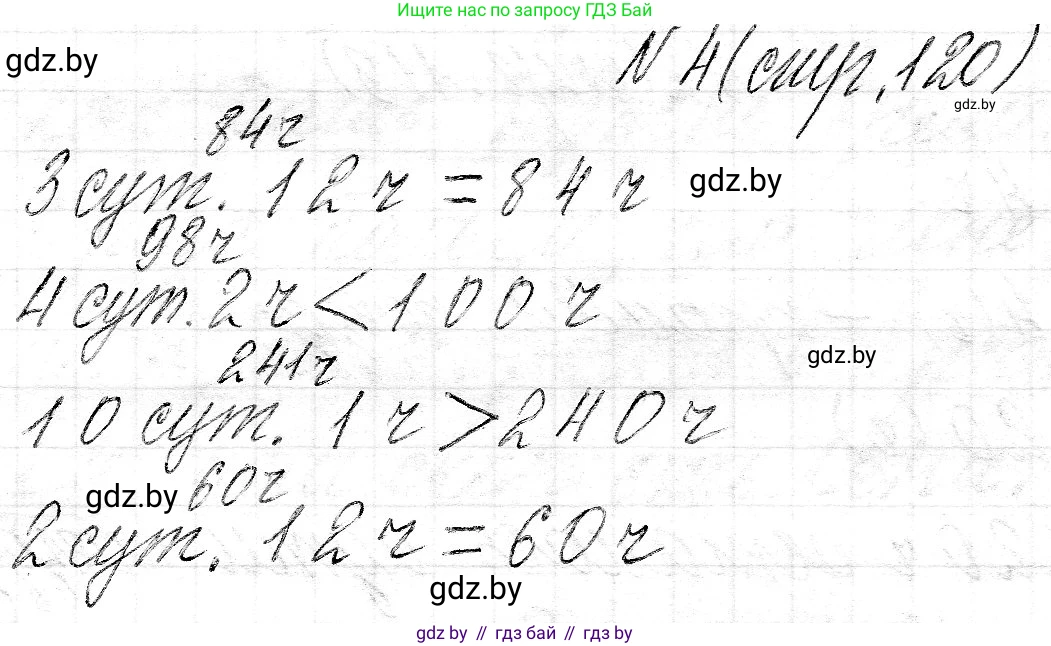 Ищите нас по запросу ГДЗ Бай
gdz.by
N 4 (стр. 120)
gdz.by
84г
3 сут. 12 г = 84 г
gdz.by
98г
4 сут. 2 г < 100 г
gdz.by
241г
10 сут. 1 г > 240 г
gdz.by
60г
2 сут. 12 г = 60 г
gdz.by
gdz by // гдз бай // гдз by